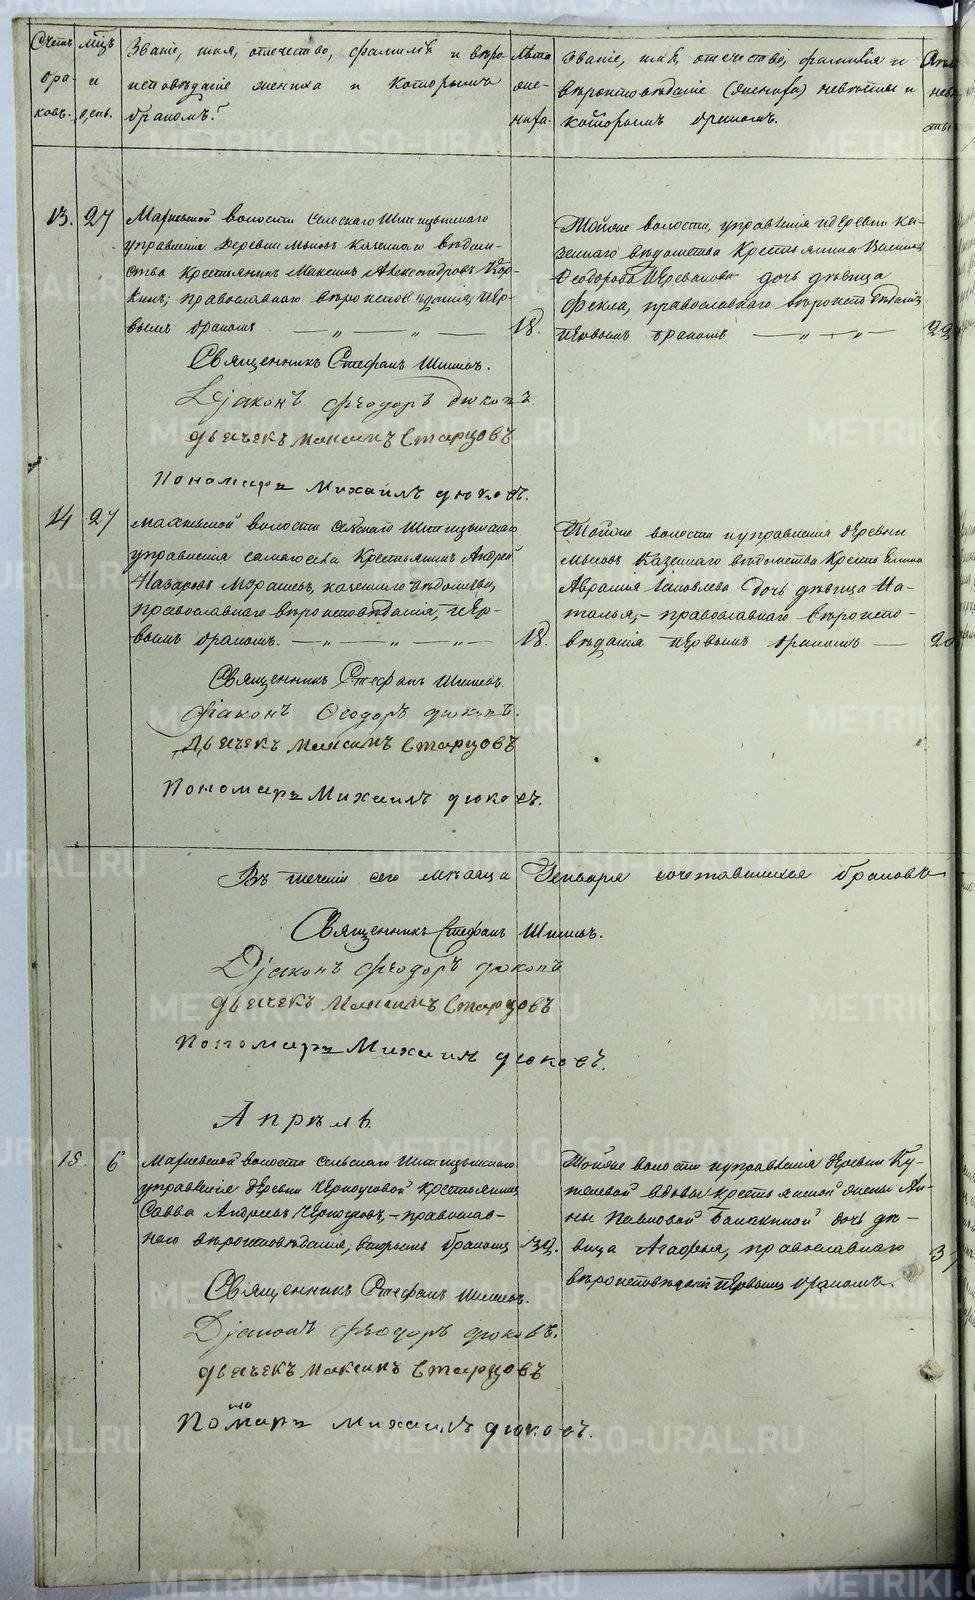 Счетъ
бра-
ковъ.
мцъ
и
день.
Званіе, имя, отечество, фамилія и вѣро-
исповѣданіе жениха и которымъ
бракомъ?
Лѣта
же-
ниха.
Званіе, имя, отечество, фамилія и
вѣроисповѣданіе (жениха) невѣсты и
которымъ бракомъ.
13. 27
волости Сельскаго
управленія Деревни Мысовъ Казеннаго вѣдом-
ства крестьянинъ Максимъ Александровъ
православнаго вѣроисповѣданія, пер-
вымъ бракомъ — „ — „ —
18.
Тойже волости, управленія и деревни ка-
зеннаго вѣдомства Крестьянина
Ѳеодорова дочь дѣвица
Фекла, православнаго вѣроисповѣданія,
первымъ бракомъ — „ — „ —
22
Священникъ Стефанъ
Діаконъ Феодоръ Дюковъ
дьячекъ Максимъ Старцовъ
Пономарь Михаилъ Дюковъ.
14 27
волости Сельскаго
управленія самаго села Крестьянинъ Андрей
Назаровъ казеннаго вѣдомства,
православнаго вѣроисповѣданія, пер-
вымъ бракомъ. — „ — „ — „ —
18.
Тойже волости и управленія деревни
Мысовъ Казеннаго вѣдомства
Яковлева дочь дѣвица На-
талья, – православнаго вѣроиспо-
вѣданія первымъ бракомъ —
20
Священникъ Стефанъ
Діаконъ Ѳеодоръ Дюковъ.
Дьячекъ Максимъ Старцовъ
Пономарь Михаилъ Дюковъ.
Въ теченіи сего мѣсяца Генваря сочетавшихся браковъ
Священникъ Стефанъ
Діаконъ Феодоръ Дюковъ
дьячекъ Максимъ Старцовъ
Пономарь Михаилъ Дюковъ.
Апрѣль
15. 6
волости Сельскаго
управленія деревни Черноусовой крестьянинъ
Савва Андреевъ Черноусовъ, – православ-
наго вѣроисповѣданія, вторымъ бракомъ
39.
Тойже волости и управленія деревни
вдовы крестьянской жены Ан-
ны Павловой дочь дѣ-
вица Агафья, православнаго
вѣроисповѣданія первымъ бракомъ.
Священникъ Стефанъ
Діаконъ Феодоръ Дюковъ.
дьячекъ Максимъ Старцовъ
Пономарь Михаилъ Дюковъ.
METRIKI.GASO-URAL.RU